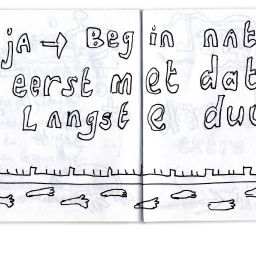 ja → Beg in nat
eerst met dat
Langst e duu